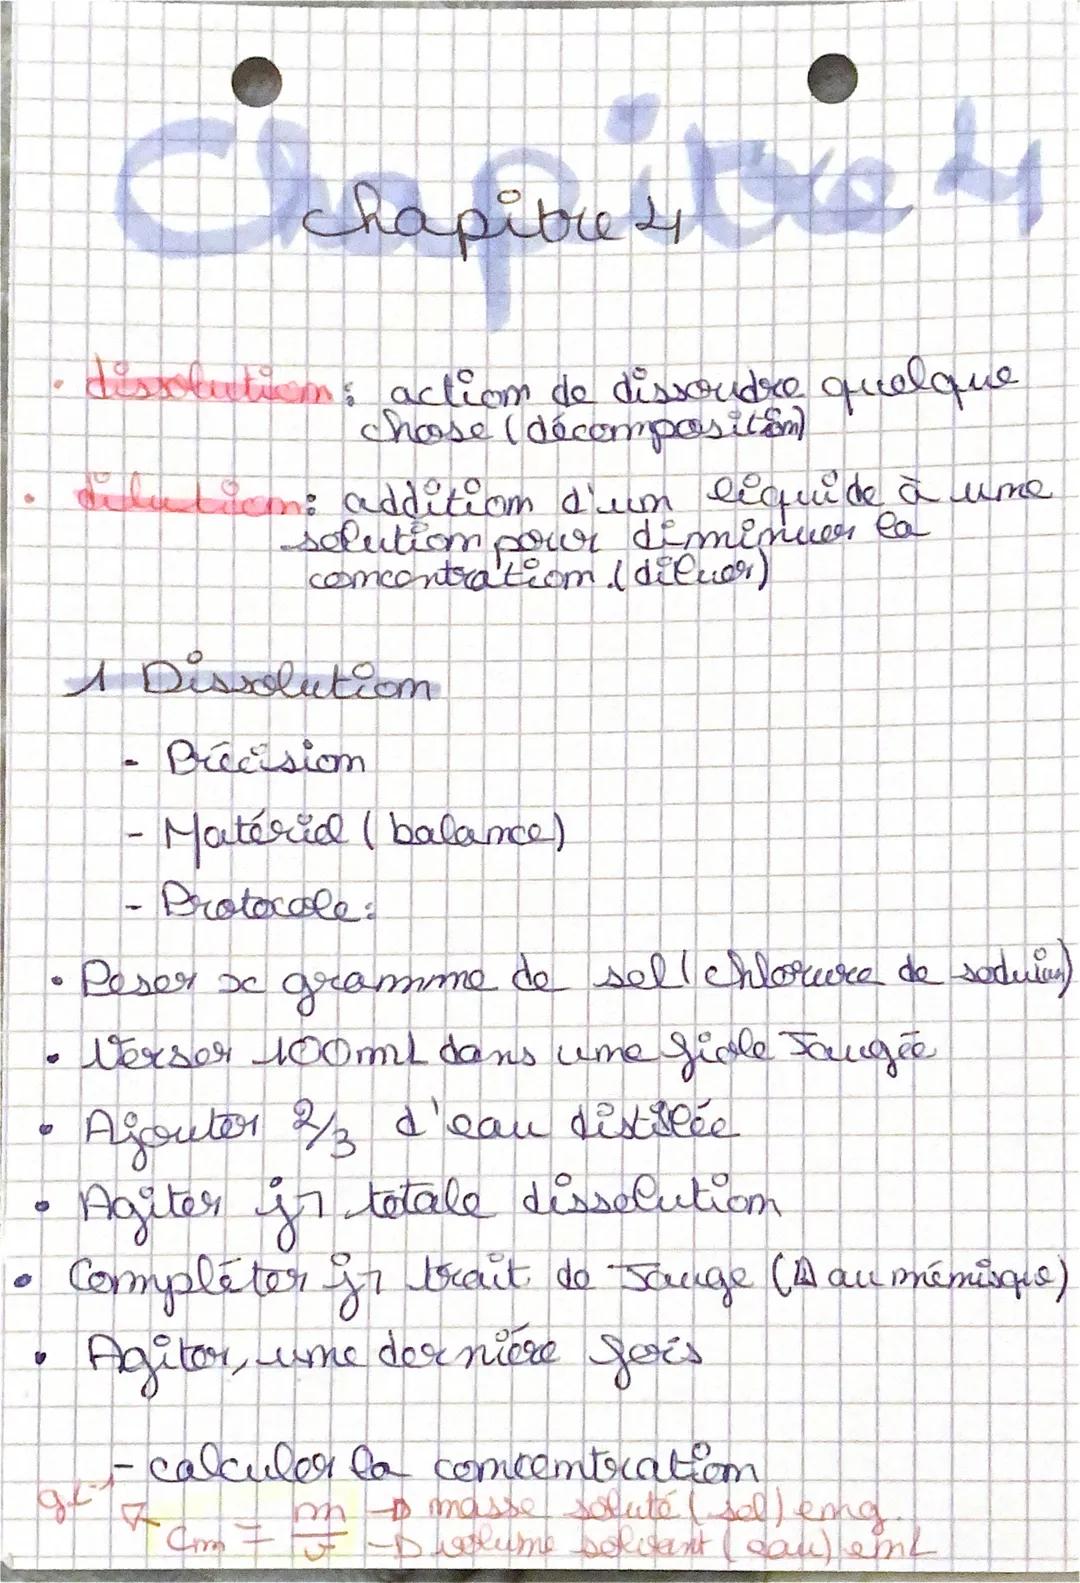 Chapitre 4
chapitre 4
• dissolution : action de dissoudre quelque
chose (décomposition)
• dilution : addition d'un liquide à une
solution pour diminuer la
concentration (diluer)
1 Dissolution
- Précision
- Matériel (balance)
- Protocole :
• Peser x gramme de sel (chlorure de sodium)
• Verser 100mL dans une fiole Jaugée
• Ajouter 2/3 d'eau distilée
• Agiter jq totale dissolution
• Compléter jq trait de Jauge (⚠ au ménisque)
• Agiter, une dernière fois
- calculer la concentration
gL⁻¹ Cm = m/v → masse soluté (sel) en g
→ volume solvant (eau) en L